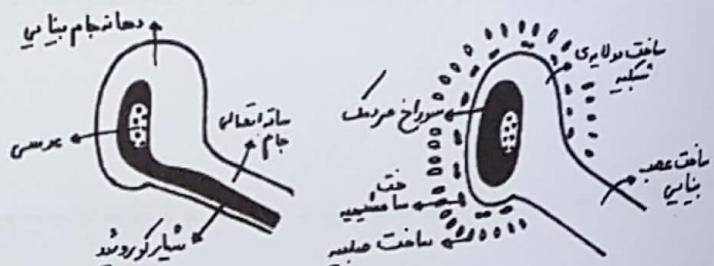 دهانه جام بینایی
عدسی
ساقه اتصالی
جام
شیار کوروئید
ساخت دولایه‌ی
شبکیه
سوراخ مردمک
ساخت عصب
بینایی
ساخت
ساخت صلبیه